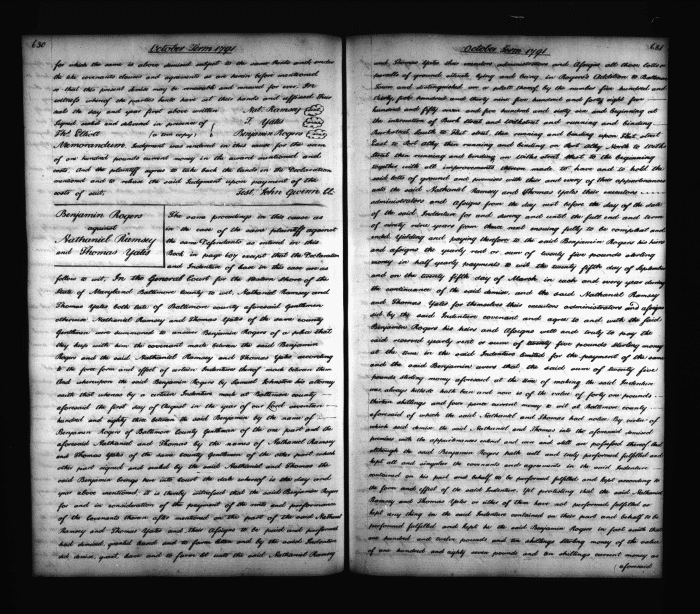 630
October Term 1791
for which the same is above demised subject to the same Rents and under
the like covenants clauses and agreements as are herein before mentioned
so that this present demise may be renewable and renewed for ever. In
witness whereof the parties hereto have set their hands and affixed their
seals the day and year first above written Nat. Ramsey (Seal)
Signed sealed and delivered in presence of T. Yates (Seal)
Thos. Elliott (a true copy) Benjamin Rogers (Seal)
Memorandum Judgment was rendered in this cause for the sum
of one hundred pounds current money in the award mentioned and
costs. And the plaintiff agrees to take back the lands in the Declaration
mentioned and to release the said Judgment upon payment of the
costs of suit. Test. John Gwinn Cl.
Benjamin Rogers
against
Nathaniel Ramsey
and Thomas Yates
The same proceedings in this cause as
in the case of the same plaintiff against
the same Defendants as entered in this
Book in page 604 except that the Declaration
and Indenture of lease in this case are as
follow to wit. In the General Court for the Western Shore of the
State of Maryland Baltimore County to wit. Nathaniel Ramsey and
Thomas Yates both late of Baltimore County aforesaid Gentlemen
otherwise Nathaniel Ramsey and Thomas Yates of the same county
Gentlemen were summoned to answer Benjamin Rogers of a plea that
they keep with him the covenant made between the said Benjamin
Rogers and the said Nathaniel Ramsey and Thomas Yates according
to the force form and effect of certain Indenture thereof made between them
And whereupon the said Benjamin Rogers by Samuel Johnston his attorney
saith that whereas by a certain Indenture made at Baltimore County
aforesaid the first day of August in the year of our Lord seventeen
hundred and eighty three between the said Benjamin by the name of
Benjamin Rogers of Baltimore County Gentleman of the one part and the
aforesaid Nathaniel and Thomas by the names of Nathaniel Ramsey
and Thomas Yates of the same county Gentlemen of the other part which
other part signed and sealed by the said Nathaniel and Thomas the
said Benjamin brings here into Court the date whereof is the day and
year above mentioned, it is clearly witnessed that the said Benjamin Rogers
for and in consideration of the payment of the rents and performance
of the Covenants therein after mentioned on the part of the said Nathaniel
Ramsey and Thomas Yates and their Assigns to be paid and performed
had demised granted leased and to farm letten and by the said Indenture
did demise, grant, lease and to farm let unto the said Nathaniel Ramsey
October Term 1791
631
and Thomas Yates their executors administrators and Assigns all those lots or
parcells of ground situate lying and being in Rogers's Addition to Baltimore
Town and distinguished on a platt thereof by the number five hundred and
thirty five hundred and thirty nine five hundred and forty eight five
hundred and fifty seven and five hundred and sixty six and beginning at
the intersection of Bank street and street and running and binding
street South to Pitt street then running and bounding upon Pitt street
East to Port alley then running and binding on Port alley North to
Street then running and binding on street to the beginning
together with all improvements thereon made to have and to hold the
said lots of ground and premises with their and every of their appurtenances
unto the said Nathaniel Ramsey and Thomas Yates their executors
administrators and Assigns from the day next before the day of the date
of the said Indenture for and during and until the full end and term
of ninety nine years from thence next ensuing fully to be compleat and
ended Yielding and paying therefore to the said Benjamin Rogers his heirs
and assigns the yearly rent or sum of twenty five pounds sterling
money in half yearly payments to wit the twenty fifth day of September
and on the twenty fifth day of March in each and every year during
the continuance of the said demise and the said Nathaniel Ramsey
and Thomas Yates for themselves their executors administrators and assigns
did by the said Indenture covenant and agree to and with the said
Benjamin Rogers his heirs and Assigns well and truly to pay the
said reserved yearly rent or sum of twenty five pounds sterling money
at the time in the said Indenture limited for the payment of the same
and the said Benjamin avers that the said sum of twenty five
pounds sterling money aforesaid at the time of making the said Indenture
was always hitherto hath been and now is of the value of forty one pounds
thirteen shillings and four pence current money to wit at Baltimore county
aforesaid of which the said Nathaniel and Thomas had notice By virtue of
which said demise the said Nathaniel and Thomas into the aforesaid demised
premises with the appurtenances entered and were and still are possessed thereof And
although the said Benjamin Rogers hath well and truly performed fulfilled and
kept all and singular the covenants and agreements in the said Indenture
contained on his part and behalf to be performed fulfilled and kept according to
the form and effect of the said Indenture. Yet protesting that the said Nathaniel
Ramsey and Thomas Yates or either of them have not performed fulfilled or
kept any thing in the said Indenture contained on their part and behalf to be
performed fulfilled and kept he the said Benjamin Rogers in fact saith that
one hundred and twelve pounds and ten shillings sterling money of the value
of one hundred and eighty seven pounds and ten shillings current money as
aforesaid